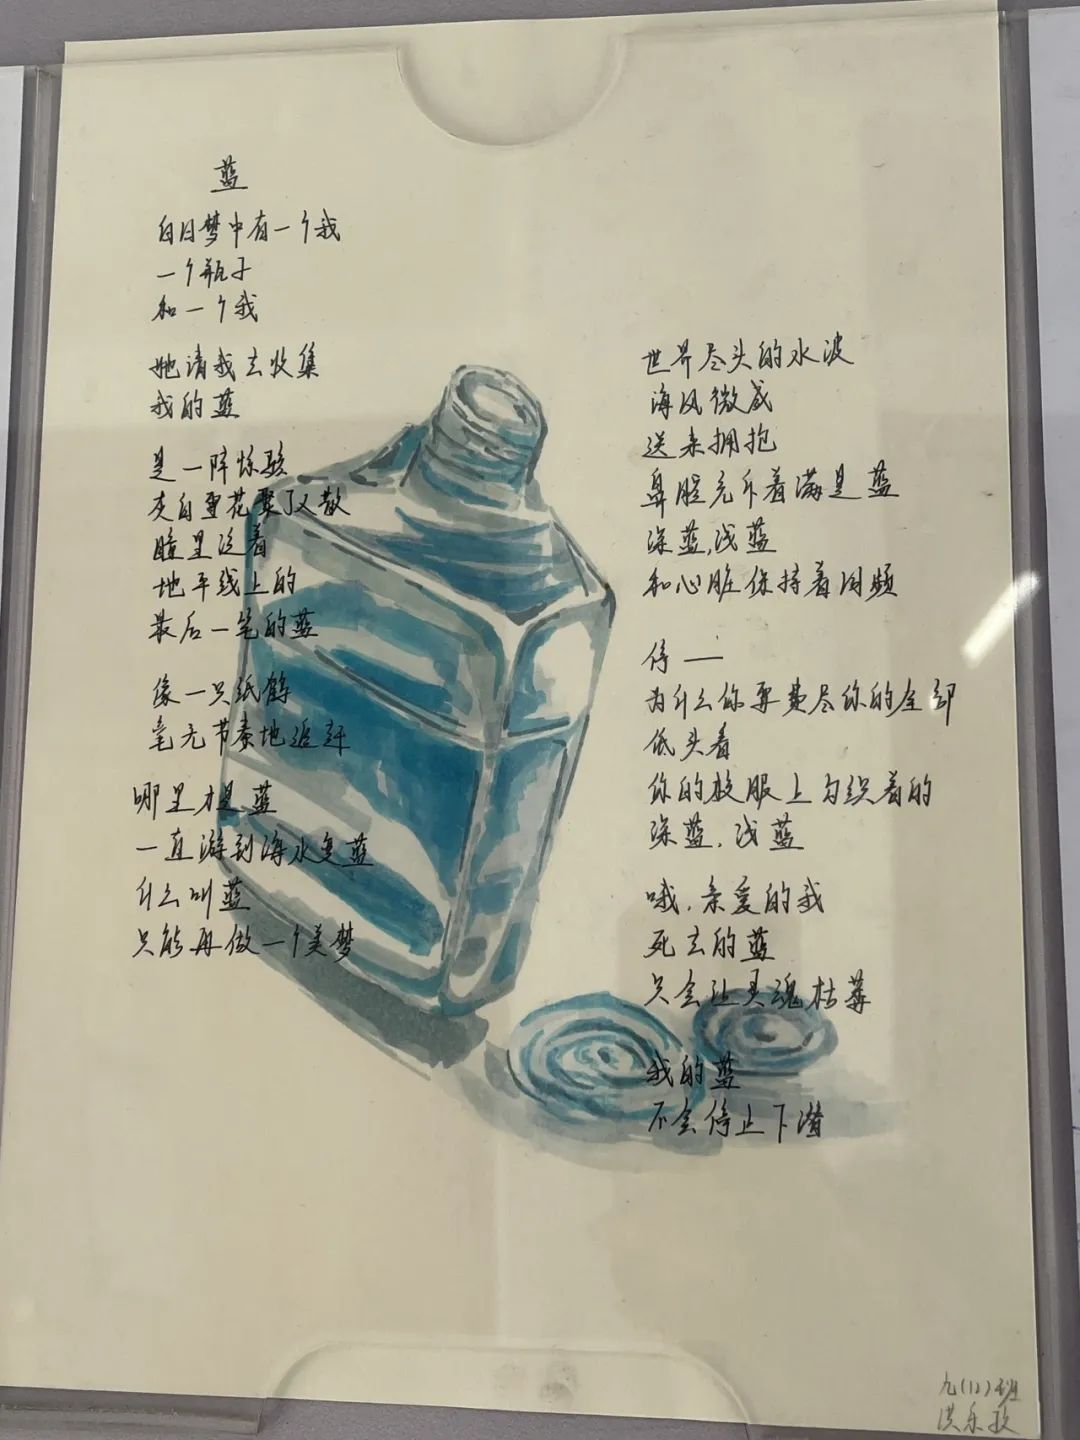 蓝
白日梦中有一个我
一个瓶子
和一个我
她请我去收集
我的蓝
是一阵惊骇
灰白雪花聚了又散
瞳里泛着
地平线上的
最后一笔的蓝
像一只纸鹤
毫无节奏地追赶
哪里才是蓝
一直游到海水变蓝
什么叫蓝
只能再做一个美梦
世界尽头的水波
海风微咸
送来拥抱
鼻腔充斥着满是蓝
深蓝,浅蓝
和心脏保持着同频
停——
为什么你要费尽你的全部
低头看
你的校服上勾织着的
深蓝,浅蓝
哦,亲爱的我
死去的蓝
只会让灵魂枯萎
我的蓝
不会停止下潜
九(12)班
洪乐